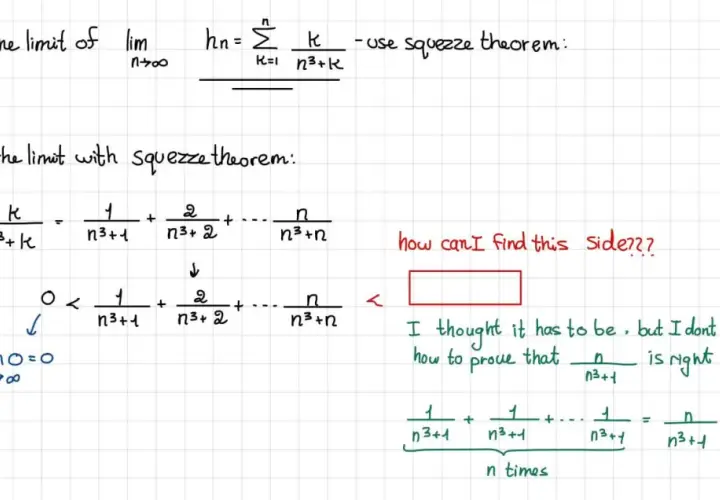 limit of lim n→∞ hn = n Σ k=1 k/(n³+k) - use squezze theorem:
the limit with squezze theorem:
k/³+k = 1/(n³+1) + 2/(n³+2) + ··· n/(n³+n)
how can I find this side???
↓
0 < 1/(n³+1) + 2/(n³+2) + ··· n/(n³+n) <
0=0
→∞
I thought it has to be, but I dont
how to prove that n/(n³+1) is right
1/(n³+1) + 1/(n³+1) + ··· 1/(n³+1) = n/(n³+1)
n times